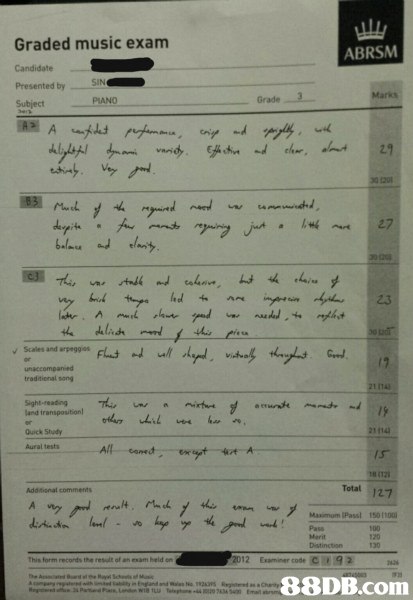 Graded music exam
ABRSM
Candidate
Presented by SIN
Subject PIANO Grade 3 Marks
A2 A confident performance, crisp and sprightly, with
delightful dynamic variety. Effective and clear, almost 29
entirely. Very good.
30 (20)
B3 Much of the required mood was communicated,
despite a few moments requiring just a little more 27
balance and clarity.
30 (20)
C3 This was stable and cohesive, but the choice of
very brisk tempo led to some imprecise rhythms 23
later. A much slower speed was needed, to reflect
the delicate mood of this piece.
30 (20)
Scales and arpeggios
or
unaccompanied
traditional song
Fluent and well shaped, virtually throughout. Good. 19
21 (14)
Sight-reading
(and transposition)
or
Quick Study
This was a mixture of accurate moments and
others which were less so. 14
21 (14)
Aural tests
All correct, except test A. 15
18 (12)
Additional comments Total 127
A very good result. Much of this exam was of
distinction level - so keep up the good work!
Maximum (Pass) 150 (100)
Pass 100
Merit 120
Distinction 130
This form records the result of an exam held on 2012 Examiner code C 192
The Associated Board of the Royal Schools of Music
88DB.com